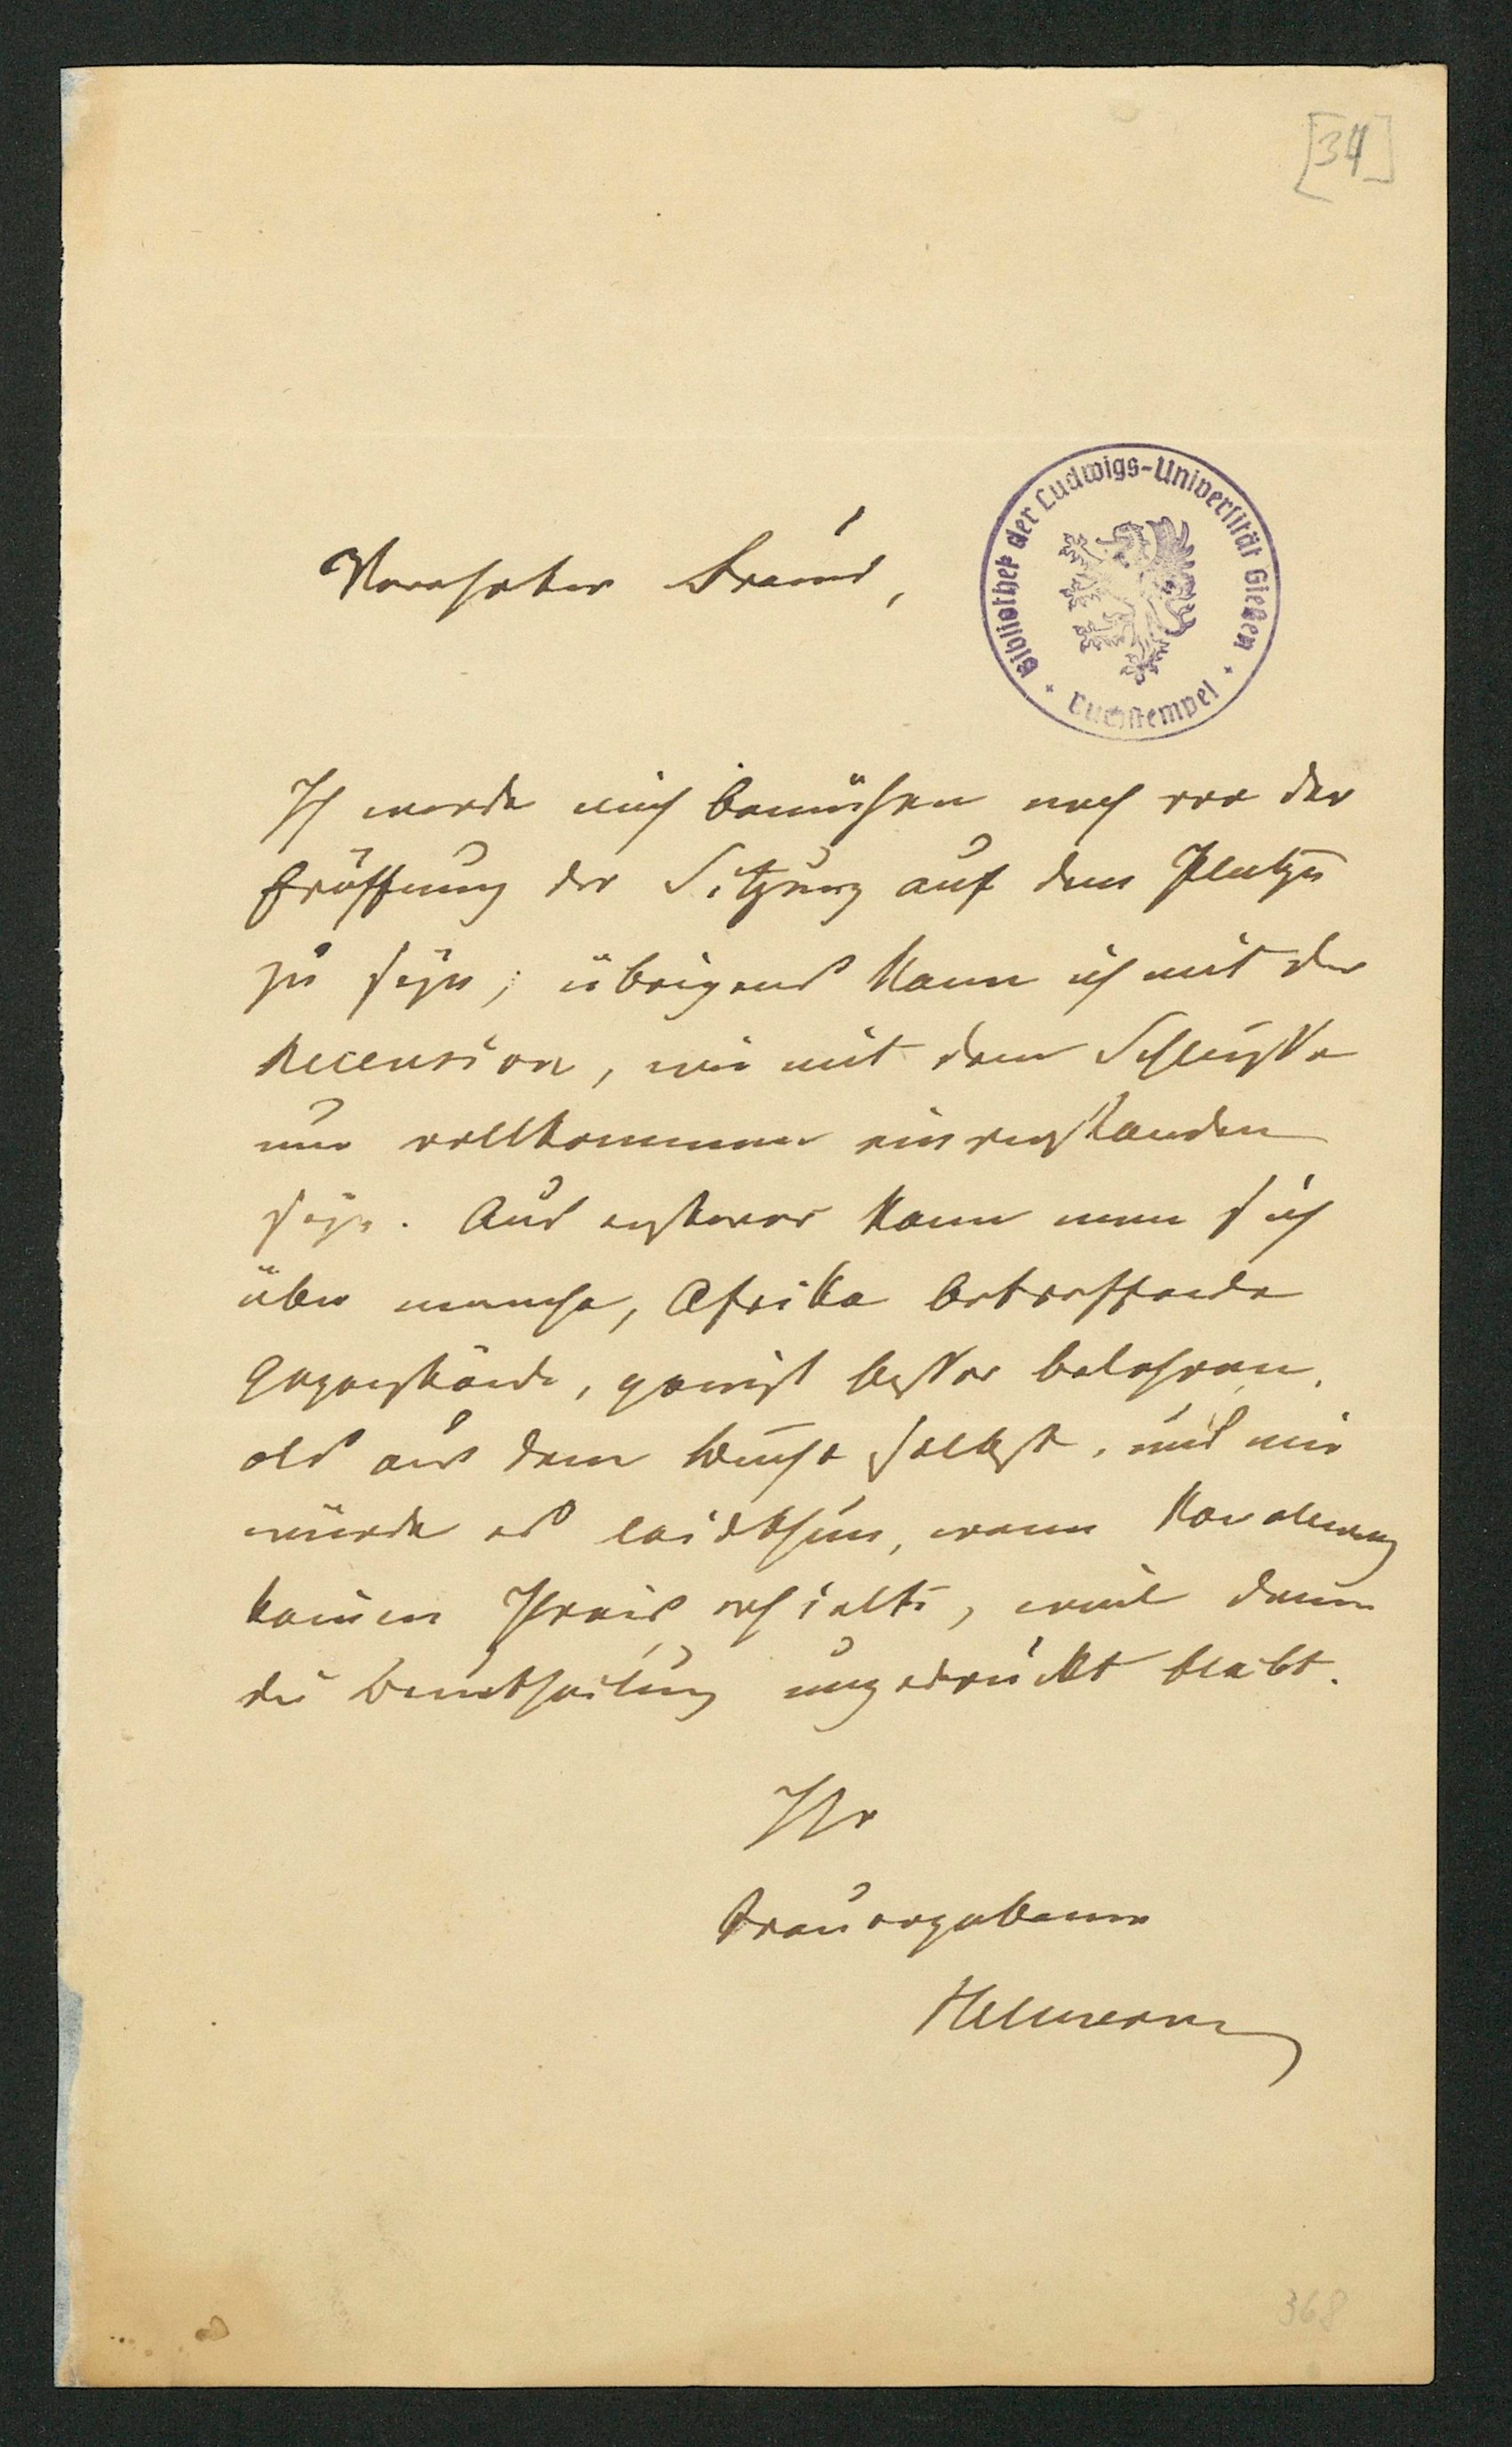 [34]
Verehrter Freund,
Bibliothek der Ludwigs-Universität Gießen
Buchstempel
Ich werde mich bemühen noch vor der
Eröffnung der Sitzung auf dem Platze
zu seyn; übrigens kann ich mit der
Recension, wie mit dem Schlusse
nur vollkommen einverstanden
seyn. Aus ersterer kann man sich
über manche, Afrika betreffende
Gegenstände, gewiß besser belehren,
als aus dem Buche selbst, und mir
würde es leidthun, wenn Kowalewsky
keinen Preis erhielte, weil dann
die Beurtheilung ungedruckt bleibt.
Ihr
treuergebener
Helmersen
368